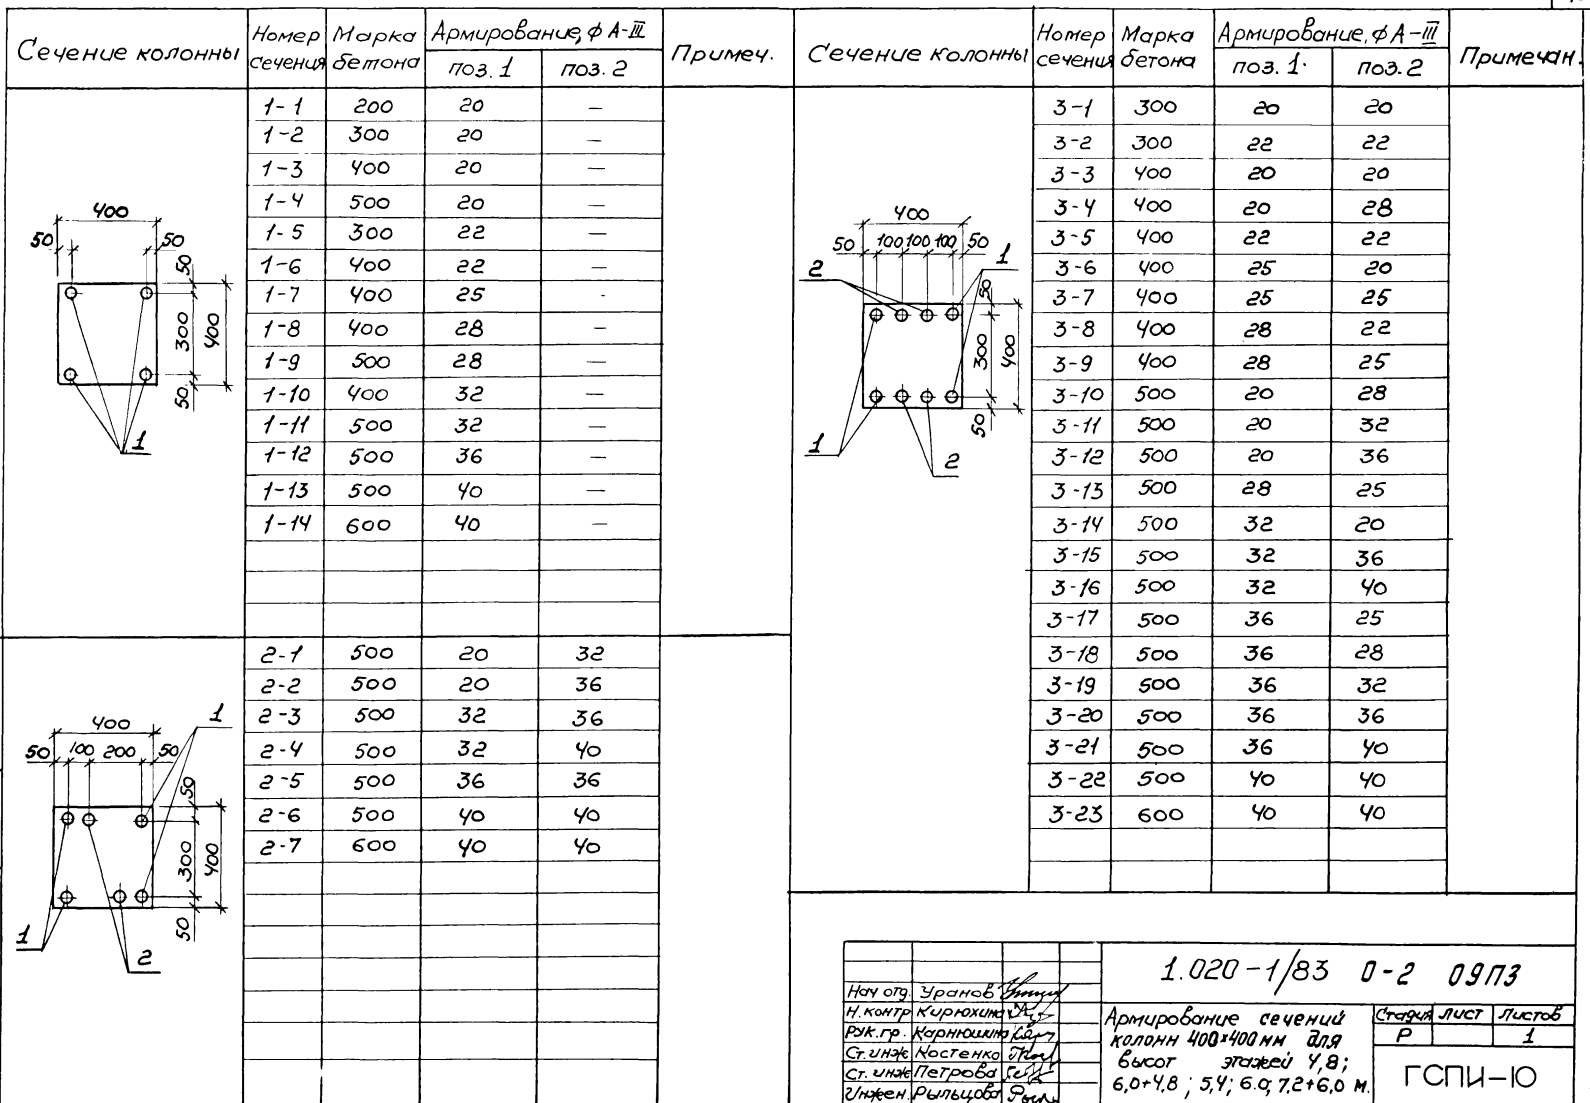 Сечение колонны Номер сечения Марка бетона Армирование, ф А-III поз. 1 поз. 2 Примеч.
1-1 200 20 —
1-2 300 20 —
1-3 400 20 —
1-4 500 20 —
1-5 300 22 —
1-6 400 22 —
1-7 400 25 -
1-8 400 28 —
1-9 500 28 —
1-10 400 32 —
1-11 500 32 —
1-12 500 36 —
1-13 500 40 —
1-14 600 40 —
400
50 50
50
300 400
50
1
2-1 500 20 32
2-2 500 20 36
2-3 500 32 36
2-4 500 32 40
2-5 500 36 36
2-6 500 40 40
2-7 600 40 40
400 1
50 100 200 50
50
300 400
50
1
2
Сечение колонны Номер сечения Марка бетона Армирование, ф А-III поз. 1 поз. 2 Примечан.
3-1 300 20 20
3-2 300 22 22
3-3 400 20 20
3-4 400 20 28
3-5 400 22 22
3-6 400 25 20
3-7 400 25 25
3-8 400 28 22
3-9 400 28 25
3-10 500 20 28
3-11 500 20 32
3-12 500 20 36
3-13 500 28 25
3-14 500 32 20
3-15 500 32 36
3-16 500 32 40
3-17 500 36 25
3-18 500 36 28
3-19 500 36 32
3-20 500 36 36
3-21 500 36 40
3-22 500 40 40
3-23 600 40 40
400
50 100 100 100 50
2 1
50
300 400
50
1 2
1.020-1/83 0-2 09ПЗ
Нач отд. Уранов
Н.контр Кирюхина
Рук.гр. Карнюшина
Ст.инж Костенко
Ст.инж Петрова
Инжен. Рыльцова
Армирование сечений
колонн 400×400 мм для
высот этажей 4,8;
6,0+4,8; 5,4; 6.0; 7,2+6,0 м.
Стадия Лист Листов
Р 1
ГСПИ-10